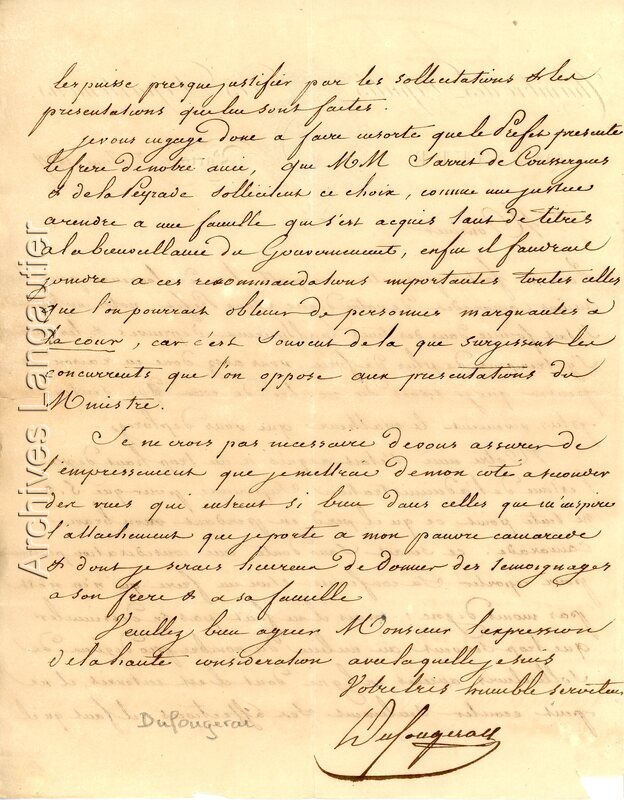 les puisse presque justifier par les sollicitations & les
présentations qui lui sont faites.
je vous engage donc a faire ensorte que le Prefet presente
le frere de notre ami, que MM Sarret de Coussergues
& de la Peyrade sollicitent ce choix, comme une justice
a rendre a une famille qui s'est acquis tant de titres
a la bienveillance du Gouvernement, enfin il faudrait
joindre a ces recommandations importantes toutes celles
que l'on pourrait obtenir de personnes marquantes à
la cour, car c'est souvent de la que surgissent les
concurrents que l'on oppose aux presentations du
Ministre.
Je ne crois pas necessaire de vous assurer de
l'empressement que je mettrai de mon coté a seconder
des vues qui entrent si bien dans celles que m'inspire
l'attachement que je porte a mon pauvre camarade
& dont je serais heureux de donner des temoignages
a son frere & a sa famille
Veuillez bien agréer Monsieur l'expression
de la haute consideration avec laquelle je suis
Votre très humble serviteur
Dufougerais
Dufougerai
Archives Langautier